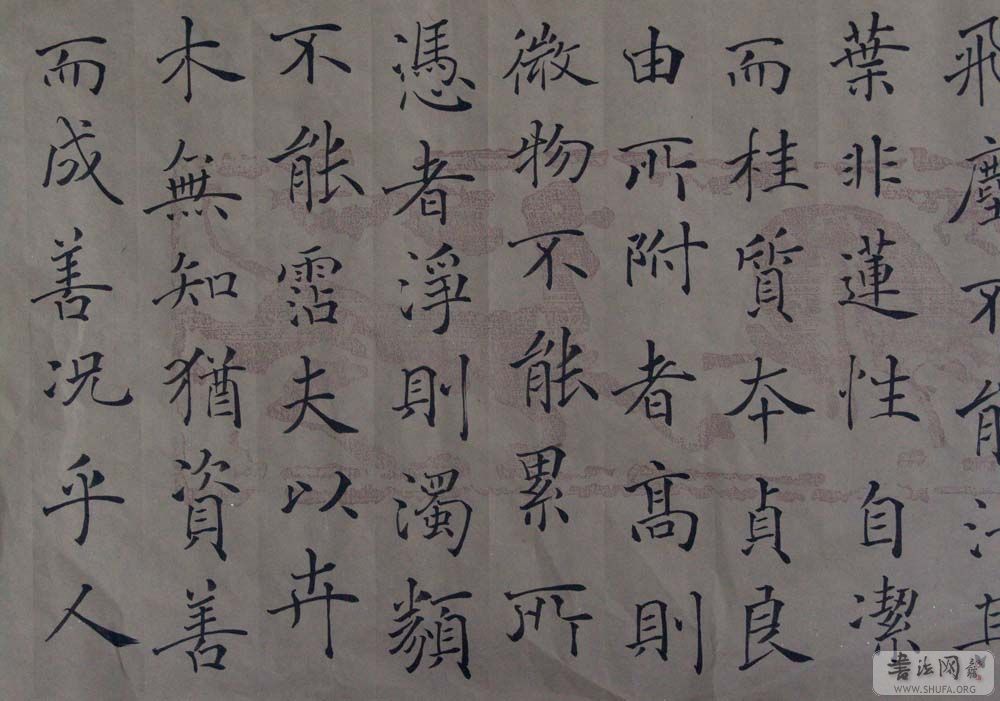 飛塵不能汙其
葉非蓮性自潔
而桂質本貞良
由所附者高則
微物不能累所
憑者淨則濁類
不能霑夫以卉
木無知猶資善
而成善況乎人
書法网
WWW.SHUFA.ORG